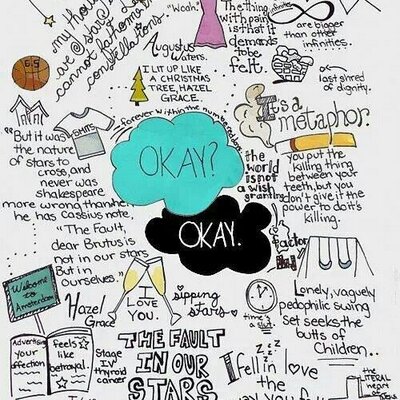 my thoughts
are stars I
cannot fathom into
constellations.
"Woah."
The thing
with pain
is that it
demands
to be
felt.
are bigger
than other
infinities.
Augustus
Waters.
6.5
I LIT UP LIKE
A CHRISTMAS
TREE, HAZEL
GRACE.
last shred
of dignity.
It's a
metaphor.
forever within the numbered days.
SMITS
"But it was
the nature
of stars to
cross, and
never was
shakespeare
more wrong than he
he has Cassius note,
"The Fault,
dear Brutus is
not in our stars
But in
ourselves."
OKAY?
OKAY.
the
world
is not
a wish
granting
factory
you put the
killing thing
between your
teeth, but you
don't give it the
power to do it's
killing.
Welcome
to
Amsterdam
Hazel
Grace
I
LOVE
YOU.
sipping
stars
time's
a slut
Lonely, vaguely
pedophilic swing
set seeks the
butts of
Children..
Advertising
your
affection
Feels
like
betrayal.
Stage
IV
thyroid
cancer
THE FAULT
IN OUR
STARS
z z z
I fell in love
the
way you fall
the
LITERAL
heart